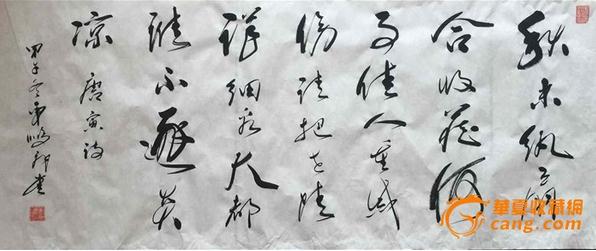 秋来纨扇
合收藏何
事佳人重感
伤请把世情
详细看大都
谁不逐炎
凉 唐寅诗
甲子冬
華夏收藏网
cang.com